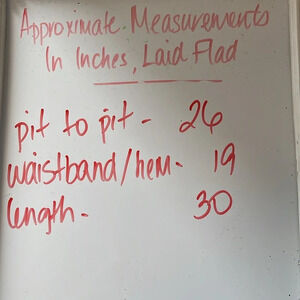 Approximate Measurements
In Inches, Laid Flad
pit to pit - 26
waistband/hem - 19
length - 30